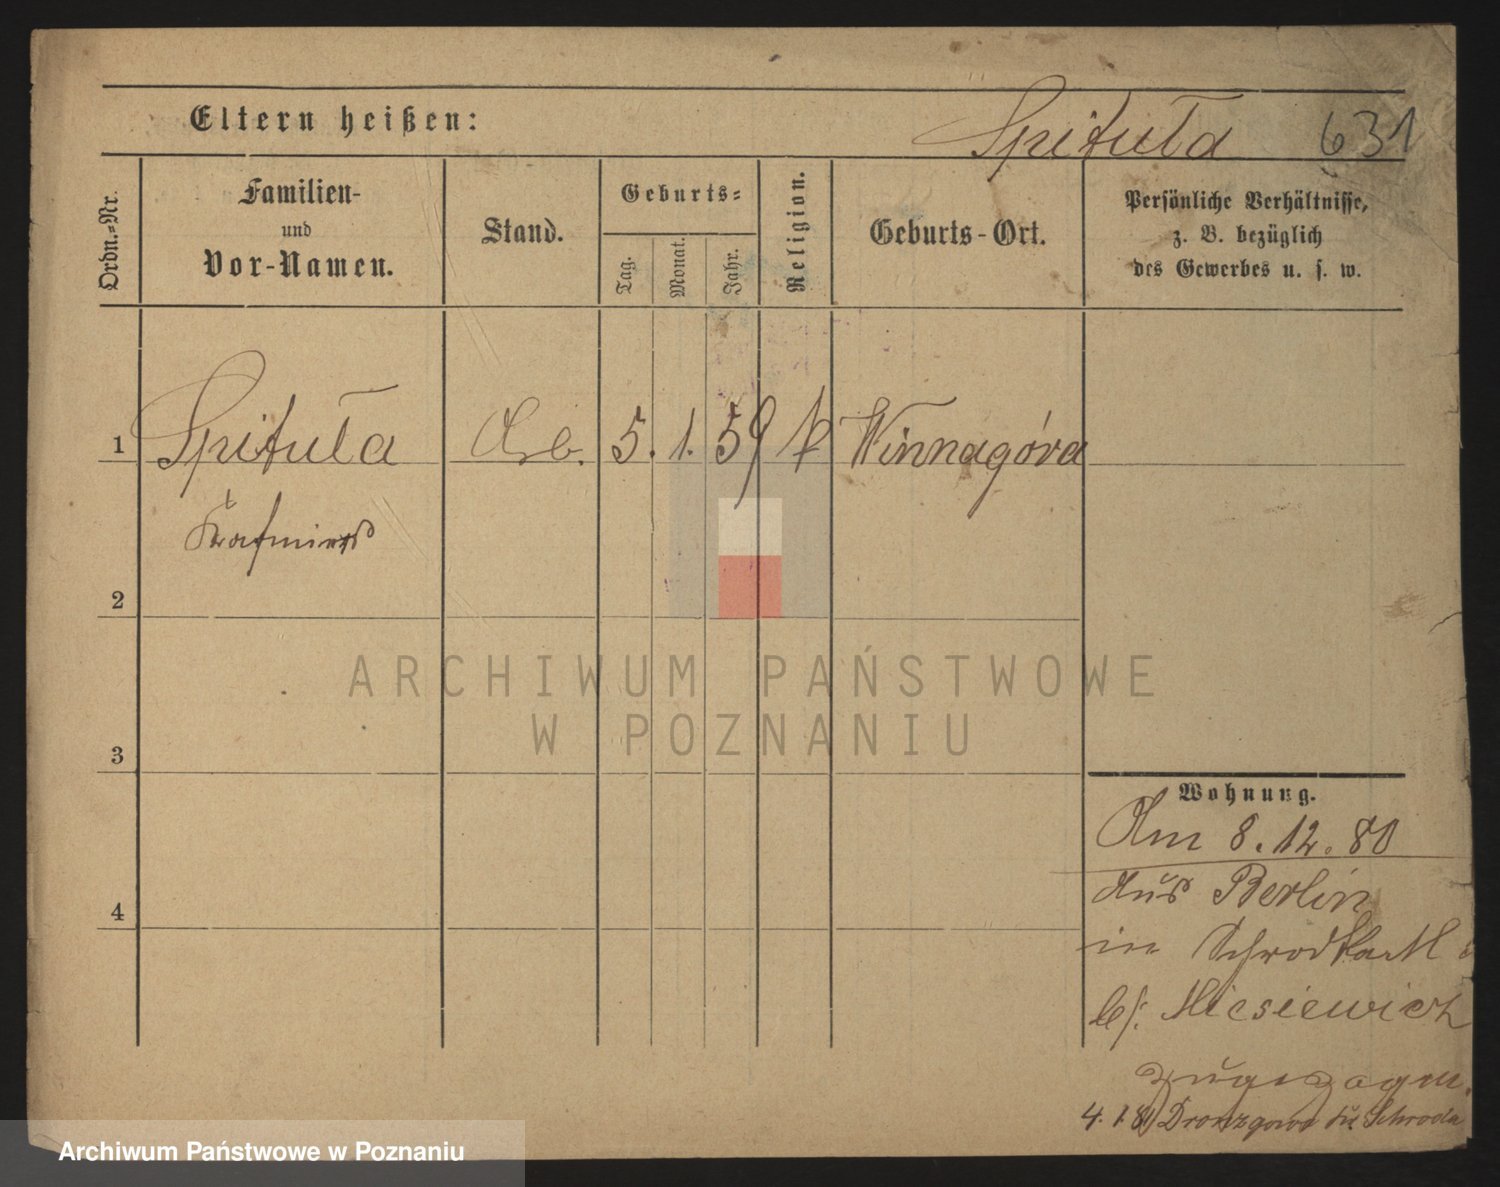 Eltern heißen:
Spituła 631
Ordn.-Nr.
Familien-
und
Vor-Namen.
Stand.
Geburts-
Tag.
Monat.
Jahr.
Religion.
Geburts-Ort.
Persönliche Verhältnisse,
z. B. bezüglich
des Gewerbes u. s. w.
1 Spituła Arb. 5. 1. 59 k Winnagóra
Kasimir
2
ARCHIWUM PAŃSTWOWE
W POZNANIU
3
Wohnung.
Am 8.12.80
aus Berlin
in
b/:
zugezogen.
4
4.1.81 Schroda
Archiwum Państwowe w Poznaniu